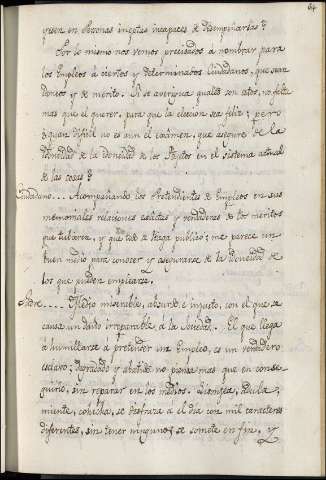 64
yesen en Personas ineptas incapaces de desempeñarlas?
Por lo mismo nos vemos precisados a nombrar para
los Empleos a ciertos y determinados Ciudadanos, que sean
idoneos y de merito. Si se averigua quales son estos, no falta
mas que el querer, para que la eleccion sea feliz; pero
¿quan dificil no es aun el exâmen, que asegure de la
idoneidad de la idoneidad de los Sujetos en el sistema actual
de las cosas?
Ciudadano... Acompañando los Pretendientes de Empleos en sus
memoriales relaciones exâctas y verdaderas de los meritos
que tubieren, y que todo se haga publico; me parece un
buen medio para conocer y asegurarse de la idoneidad de
los que pueden emplearse.
Padre.... Medio miserable, absurdo, e injusto, con el que se
causa un daño irreparable á la Sociedad. El que llega
á humillarse á pretender un Empleo, es un verdadero
esclavo; degradado y abatido no piensa mas que en conse-
guirlo, sin reparar en los medios. Lisongea, adula,
miente, cohecha, se disfraza á el dia con mil caracteres
diferentes, sin tener ninguno; se somete en fin, y